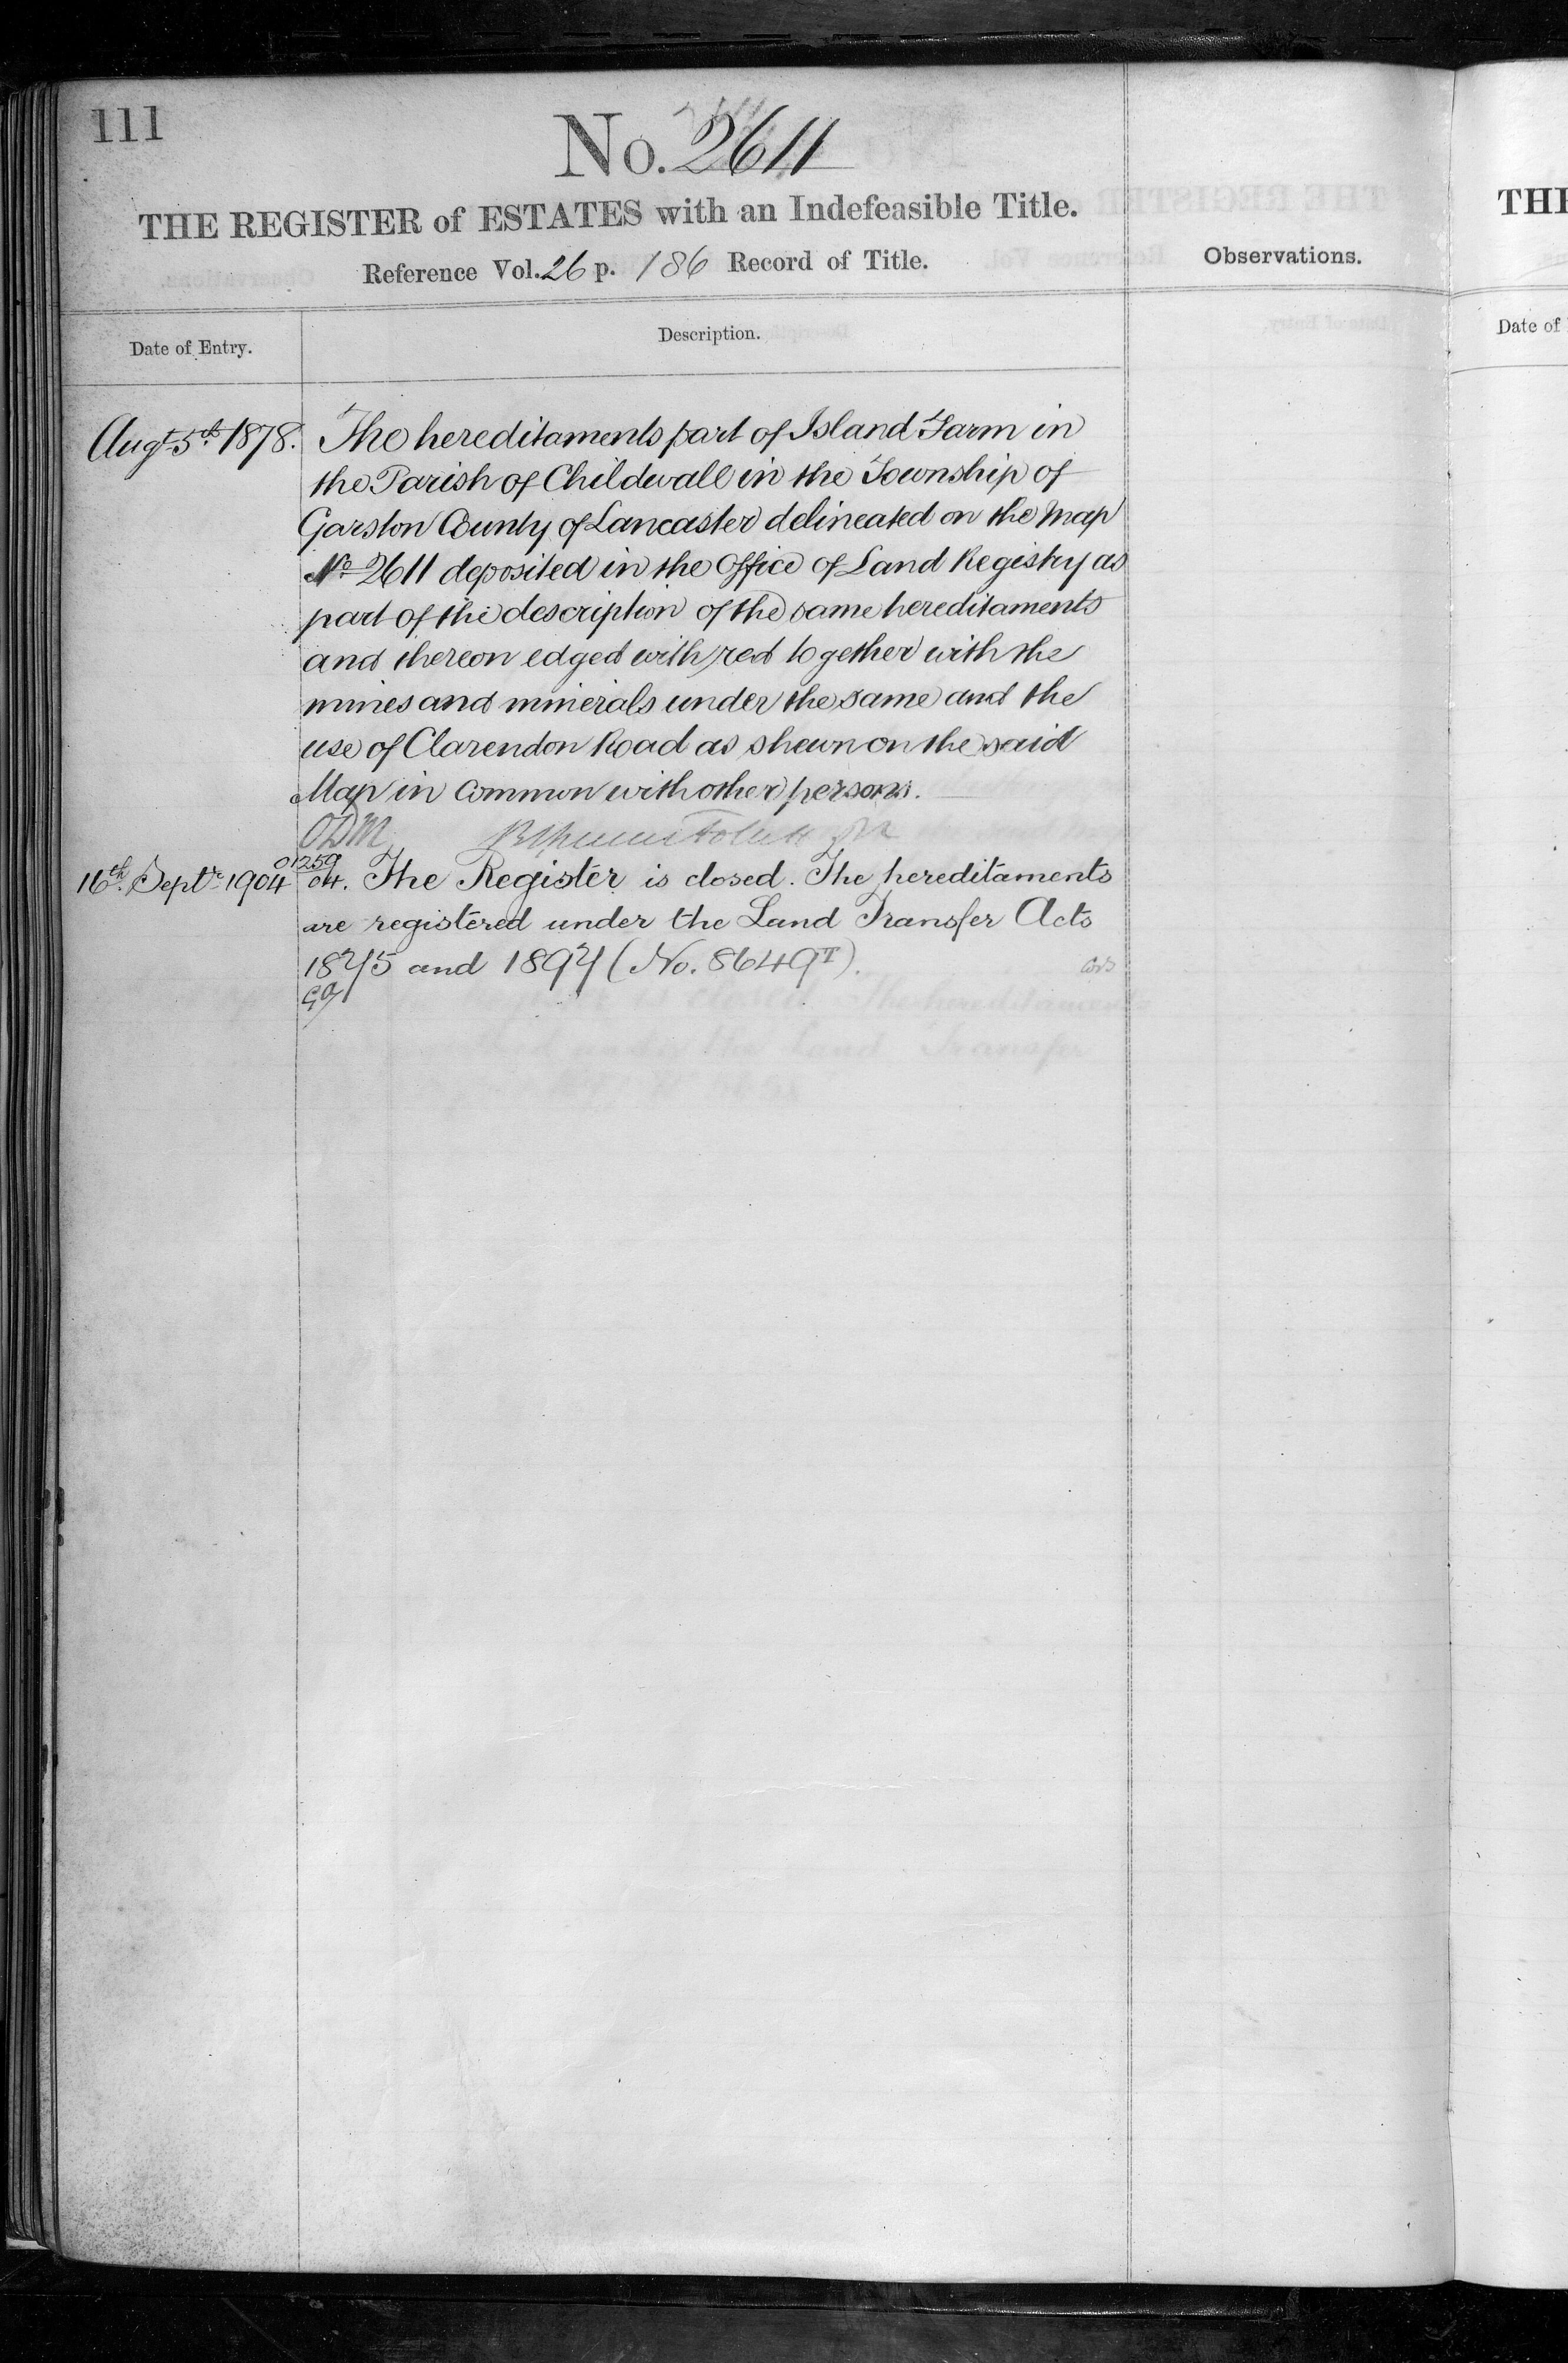 111
No. 2611
THE REGISTER of ESTATES with an Indefeasible Title.
Reference Vol. 26 p. 186 Record of Title.
Observations.
Date of Entry.
Description.
Augt 5th 1878.
The hereditaments part of Island Farm in
the Parish of Childwall in the Township of
Garston County of Lancaster delineated on the Map
No 2611 deposited in the Office of Land Registry as
part of the description of the same hereditaments
and thereon edged with red together with the
mines and minerals under the same and the
use of Clarendon Road as shewn on the said
Map in common with other persons.
ODM
16th Septr 1904
01259
04. The Register is closed. The hereditaments
are registered under the Land Transfer Acts
1875 and 1897 (No. 8649T).
THE
Date of